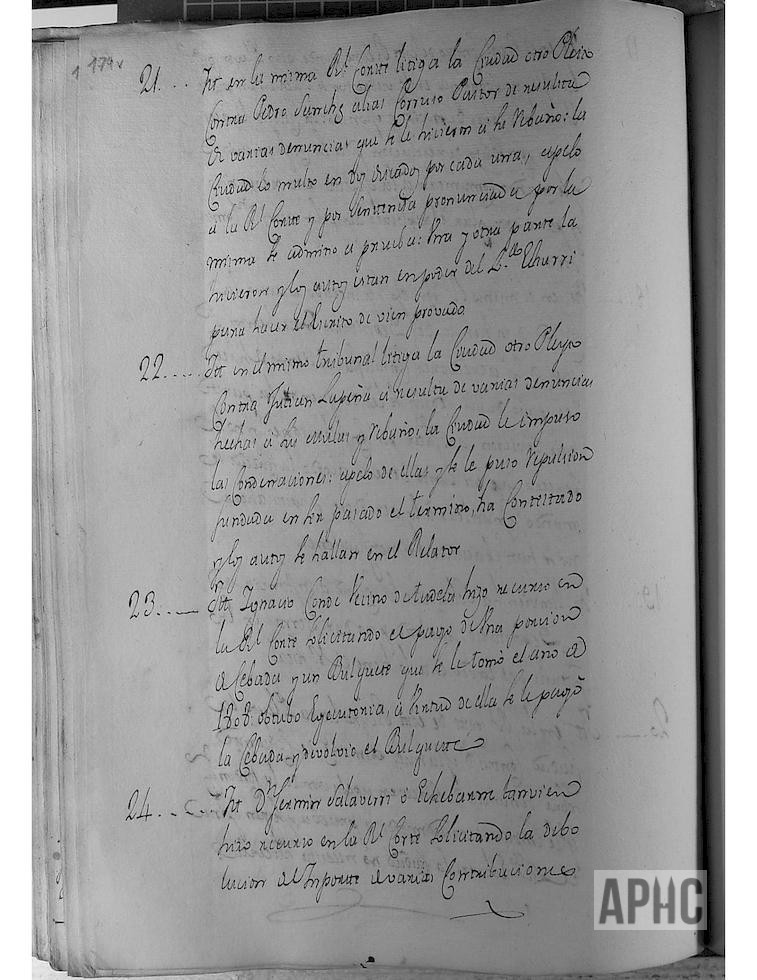 174v
21.... Itt en la misma Rl Corte litiga la Ciudad otro Pleito
Contra Pedro Sanchz alias Corruso Pastor de resulta
de varias denuncias que se le hicieron a su Rebaño: la
Ciudad lo multo en dos ducados por cada una, apelo
a la Rl Corte y por Sentencia pronunciada por la
misma se admitio a prueba: Una y otra parte la
hicieron y los autos estan en poder del Ldo Echarri
para hacer el escrito de vien provado
22..... Itt en el mismo tribunal litiga la Ciudad otro Pleyto
Contra Julian Lapeña a resulta de varias denuncias
hechas a sus mulas y Rebaño: la Ciudad le impuso
las Condenaciones: apelo de ellas y se le puso Repulsion
fundada en ser pasado el termino, ha Contestado
y los autos se hallan en el Relator
23..... Itt Ignacio Conde Vecino de Tudela hizo recurso en
la Rl Corte Solicitando el pago de Una porcion
de Cebada y un Bulquete que se le tomó el año de
1808: obtubo Egecutoria, a Virtud de ella se le pagó
la Cebada y devolvio el Bulquete
24...... Itt Dn Fermin Salaverri o Echebarren tamvien
hizo recurso en la Rl Corte Solicitando la debo
lucion del Importe de varias Contribuciones
APHC